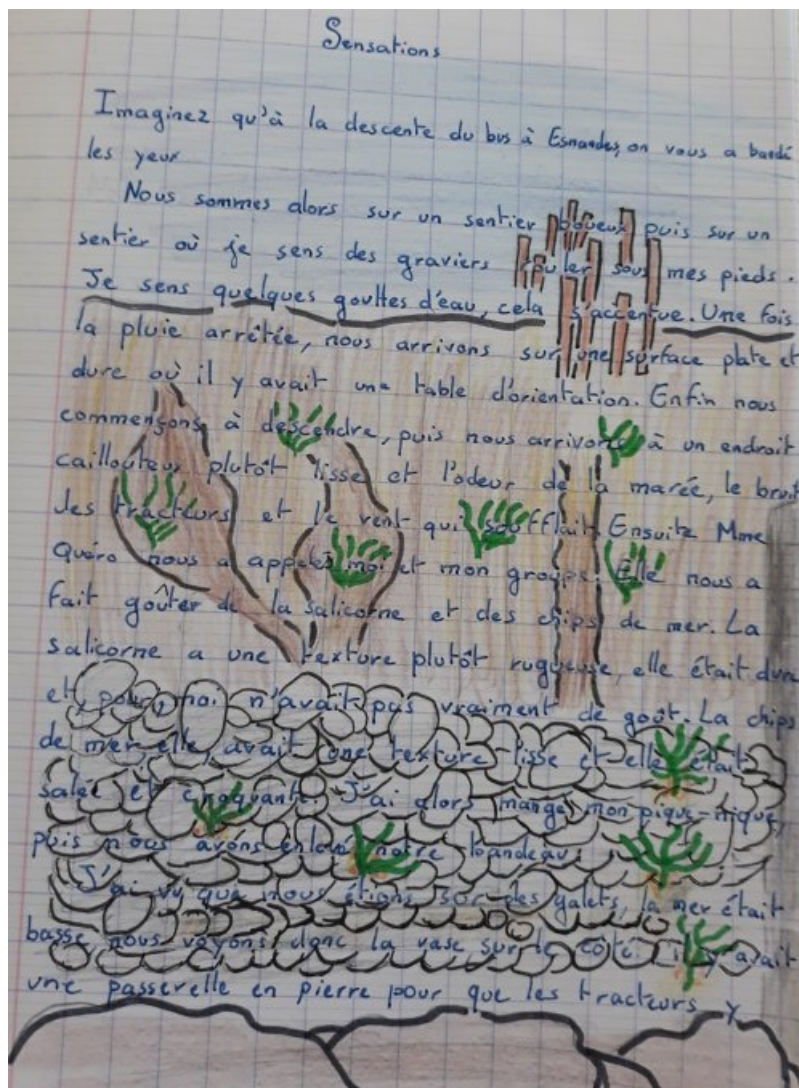 Sensations
Imaginez qu'à la descente du bus à Esnandes, on vous a bandé
les yeux
Nous sommes alors sur un sentier boueux puis sur un
sentier où je sens des graviers rouler sous mes pieds.
Je sens quelques gouttes d'eau, cela s'accentue. Une fois
la pluie arrêtée, nous arrivons sur une surface plate et
dure où il y avait une table d'orientation. Enfin nous
commençons à descendre, puis nous arrivons à un endroit
caillouteux plutôt lisse et l'odeur de la marée, le bruit
des tracteurs et le vent qui soufflait. Ensuite Mme
Quéro nous a appelés moi et mon groupe. Elle nous a
fait goûter de la salicorne et des chips de mer. La
salicorne a une texture plutôt rugueuse, elle était dure
et, pour moi n'avait pas vraiment de goût. La chips
de mer elle, avait une texture lisse et elle était
salée et croquante. J'ai alors mangé mon pique-nique,
puis nous avons enlevé notre bandeau.
J'ai vu que nous étions sur des galets, la mer était
basse nous voyons donc la vase sur le côté. il y avait
une passerelle en pierre pour que les tracteurs y